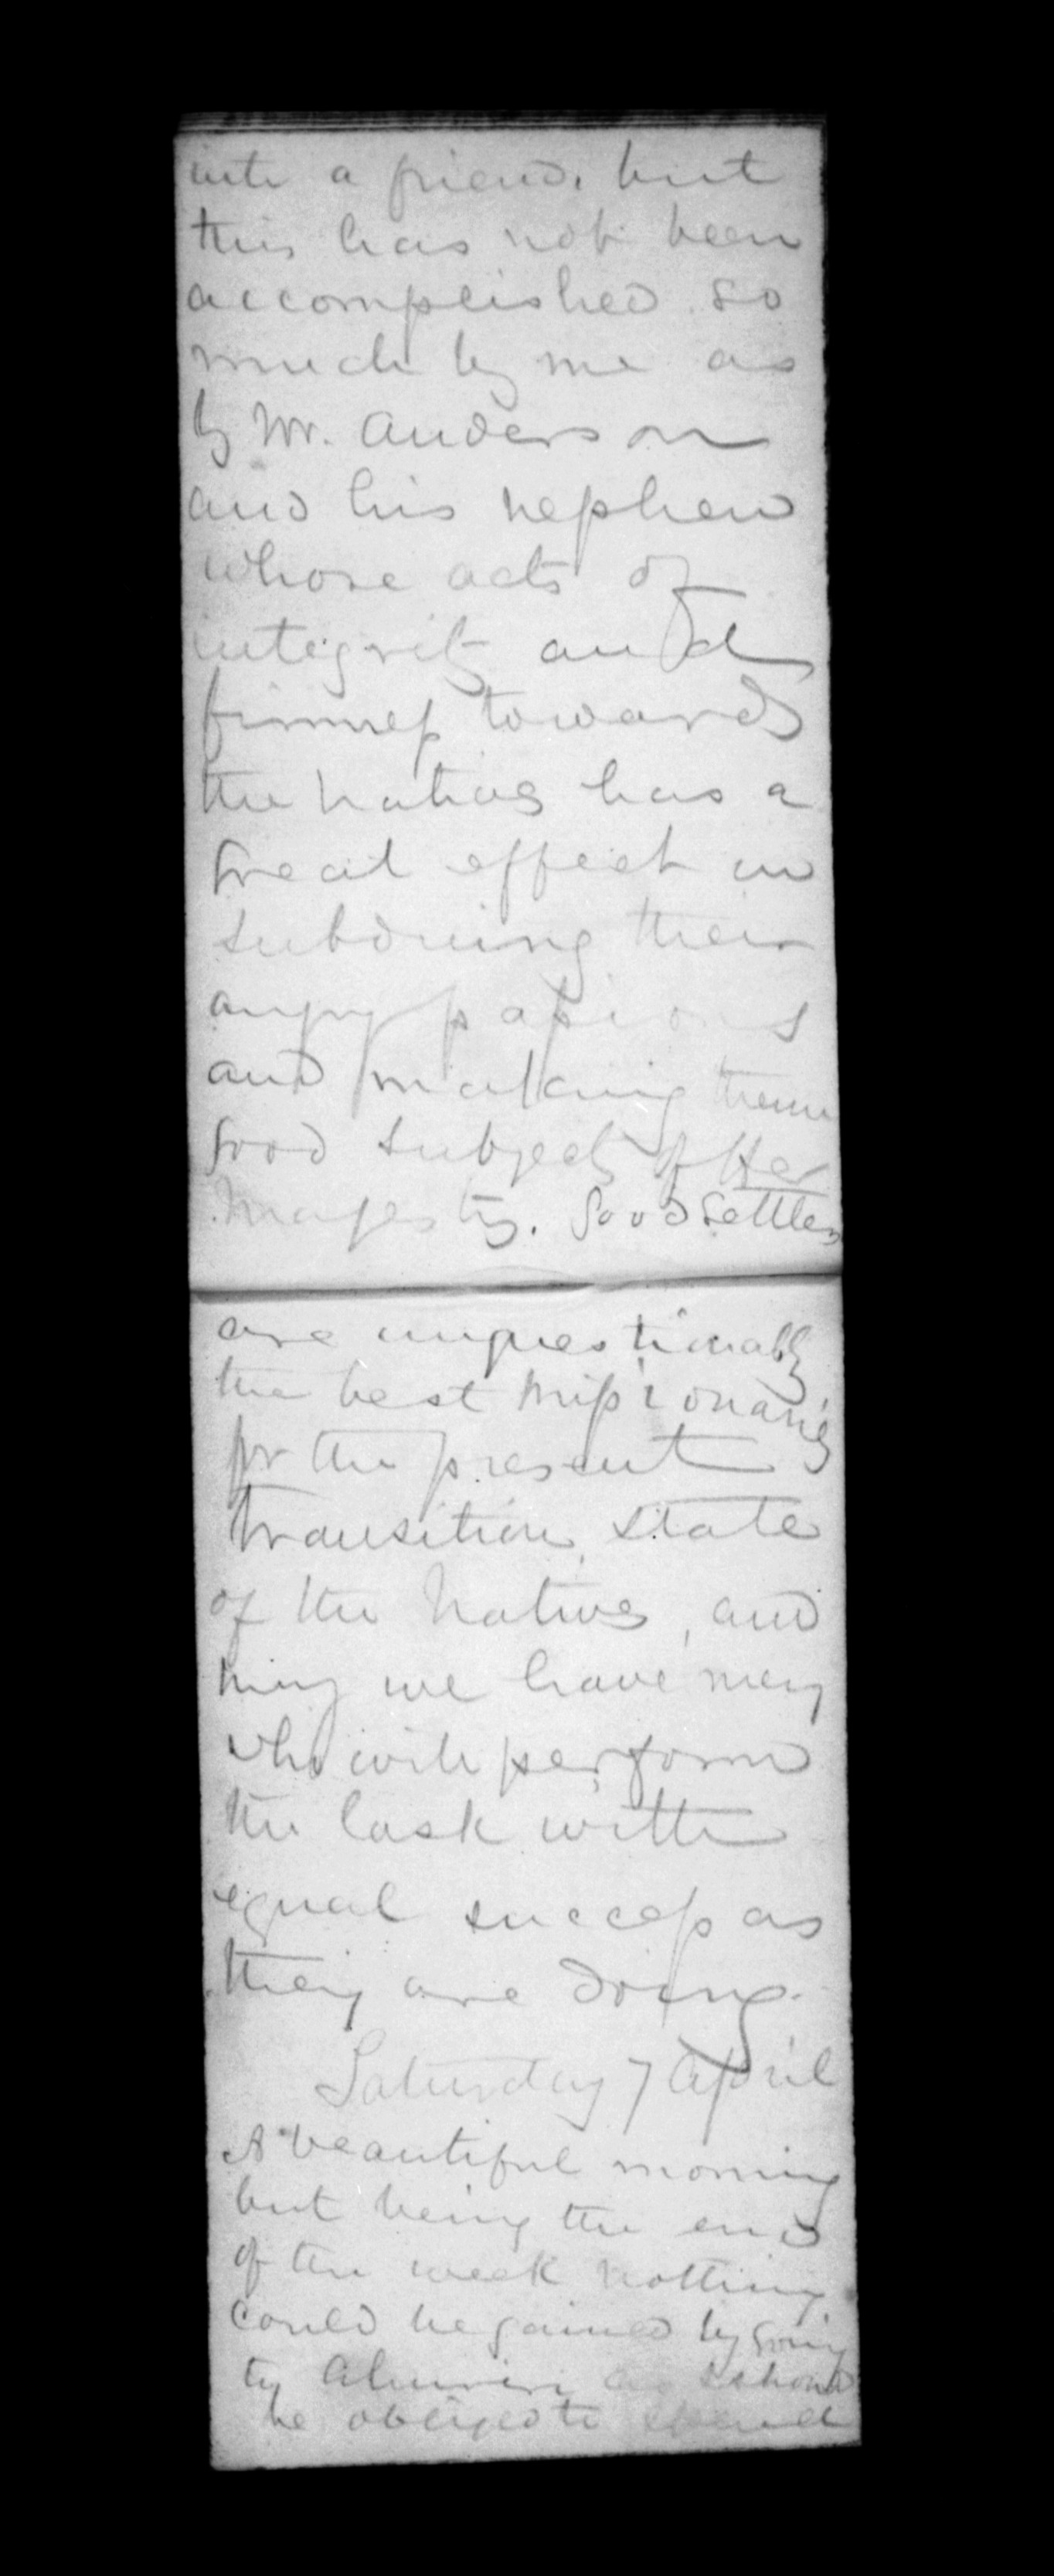 into a friend, but
this has not been
accomplished so
much by me as
by Mr. Anderson
and his nephew
whose acts of
integrity and
firmness towards
the natives has a
great effect in
subduing their
angry passions
and making them
good subjects of Her
Majesty. Good settlers
are unquestionably
the best Missionaries
for the present
transition state
of the Natives, and
we have
who will perform
the task with
equal success as
they are doing.
Saturday 7 April
A beautiful morning
but being the end
of the week nothing
could be gained by going
to Ahuriri as I should
be obliged to spend